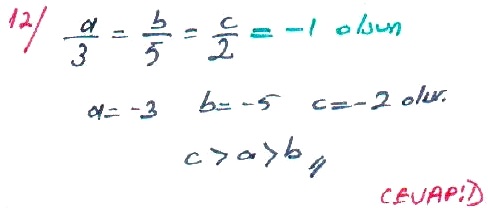 12/ a/3 = b/5 = c/2 = -1 olsun
a = -3 b = -5 c = -2 olur.
c > a > b //
CEVAP: D